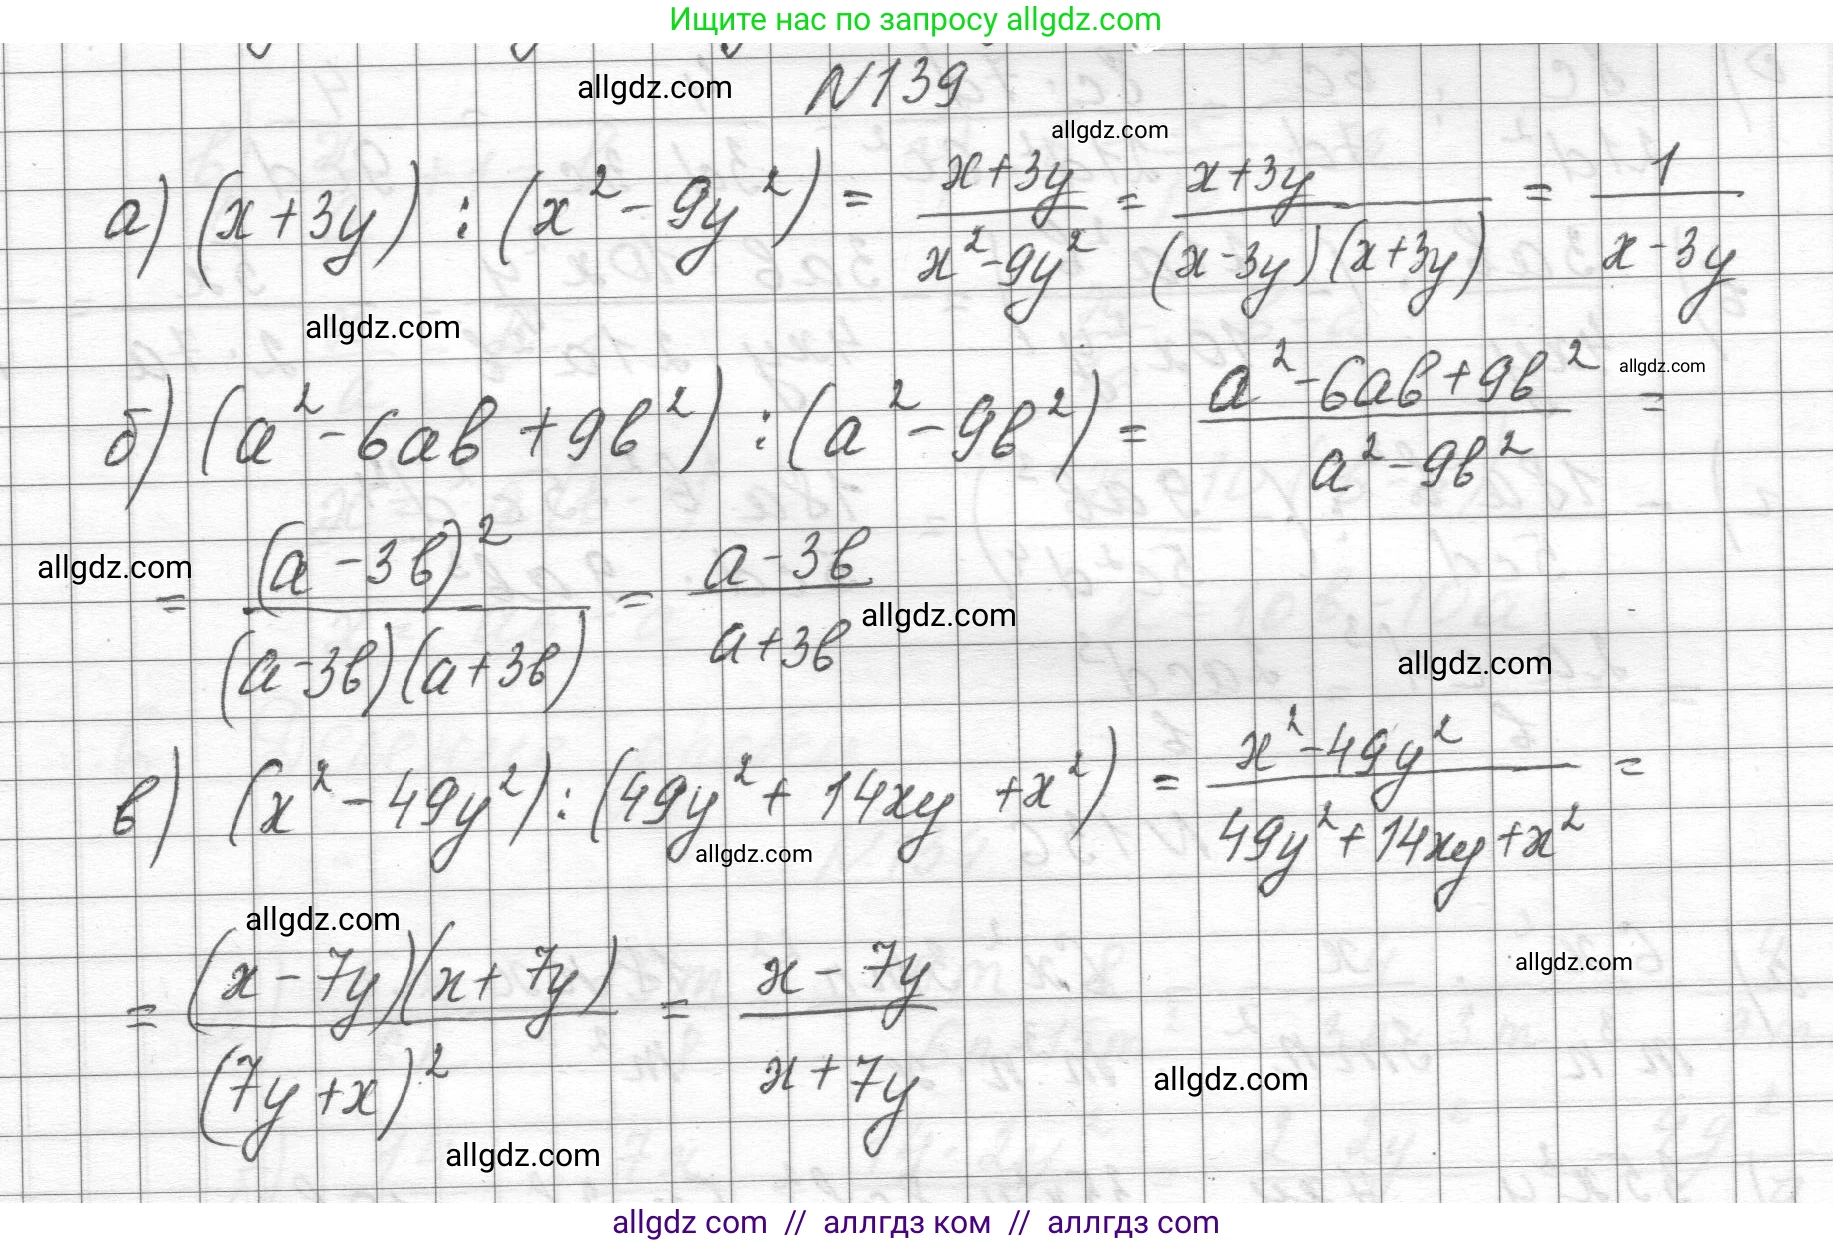 Ищите нас по запросу allgdz.com
allgdz.com N139
allgdz.com
а) (x+3y) : (x²-9y²) = x+3y / x²-9y² = x+3y / (x-3y)(x+3y) = 1 / x-3y
allgdz.com
allgdz.com
б) (a²-6ab+9b²) : (a²-9b²) = a²-6ab+9b² / a²-9b² =
allgdz.com
= (a-3b)² / (a-3b)(a+3b) = a-3b / a+3b
allgdz.com
allgdz.com
в) (x²-49y²) : (49y²+14xy+x²) = x²-49y² / 49y²+14xy+x² =
allgdz.com
allgdz.com
allgdz.com
= (x-7y)(x+7y) / (7y+x)² = x-7y / x+7y
allgdz.com
allgdz.com
allgdz com // аллгдз ком // аллгдз com